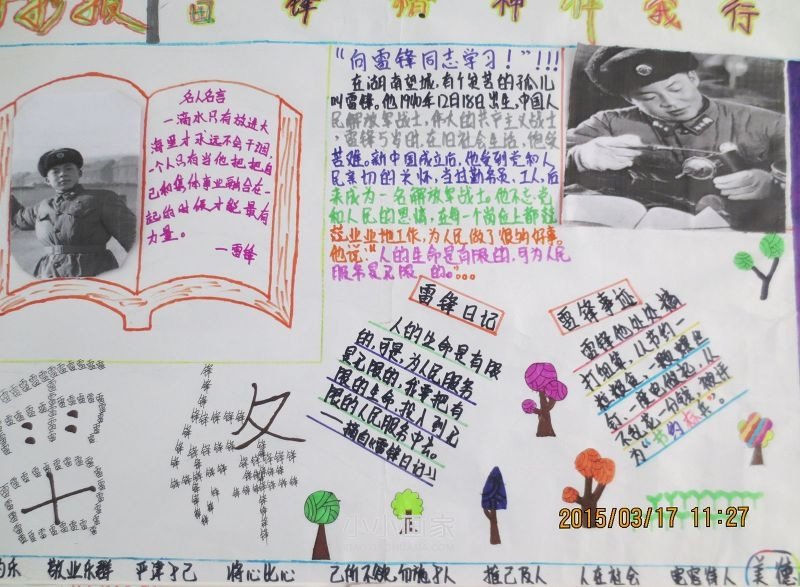 雷锋精神伴我行
名人名言
一滴水只有放进大
海里才永远不会干涸,
一个人只有当他把把自
己和集体事业融合在一
起的时候才能最有
力量。
—雷锋
“向雷锋同志学习!”!!!
在湖南望城,有个贫苦的孤儿
叫雷锋。他1940年12月18日出生,中国人
民解放军战士,伟大的共产主义战士
,雷锋5岁时,在旧社会生活,他受
苦难。新中国成立后,他受到党和人
民亲切的关怀,当过勤务员、工人,后
来成为一名解放军战士。他不忘党
和人民的恩情,在每一个岗位上都兢
兢业业地工作,为人民做了很多好事。
他说:“人的生命是有限的,可为人民
服务是无限 的。”...
雷锋日记
人的生命是有限
的,可是,为人民服务
是无限的,我要把有
限的生命,投入到无
限的人民服务中去。
——摘自《雷锋日记》
雷锋事迹
雷锋他处处精
打细算,从节约一
针一线也做起,从
为“节约标兵”。
雷
锋
小小画家
2015/03/17 11:27
敬业乐群 严于律己 将心比心 己所不欲,勿施于人 推己及人 人在社会